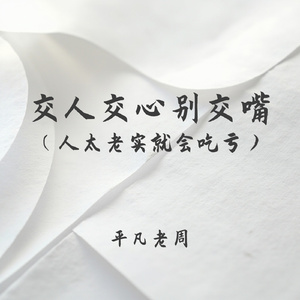 交人交心别交嘴
（人太老实就会吃亏）
平凡老周